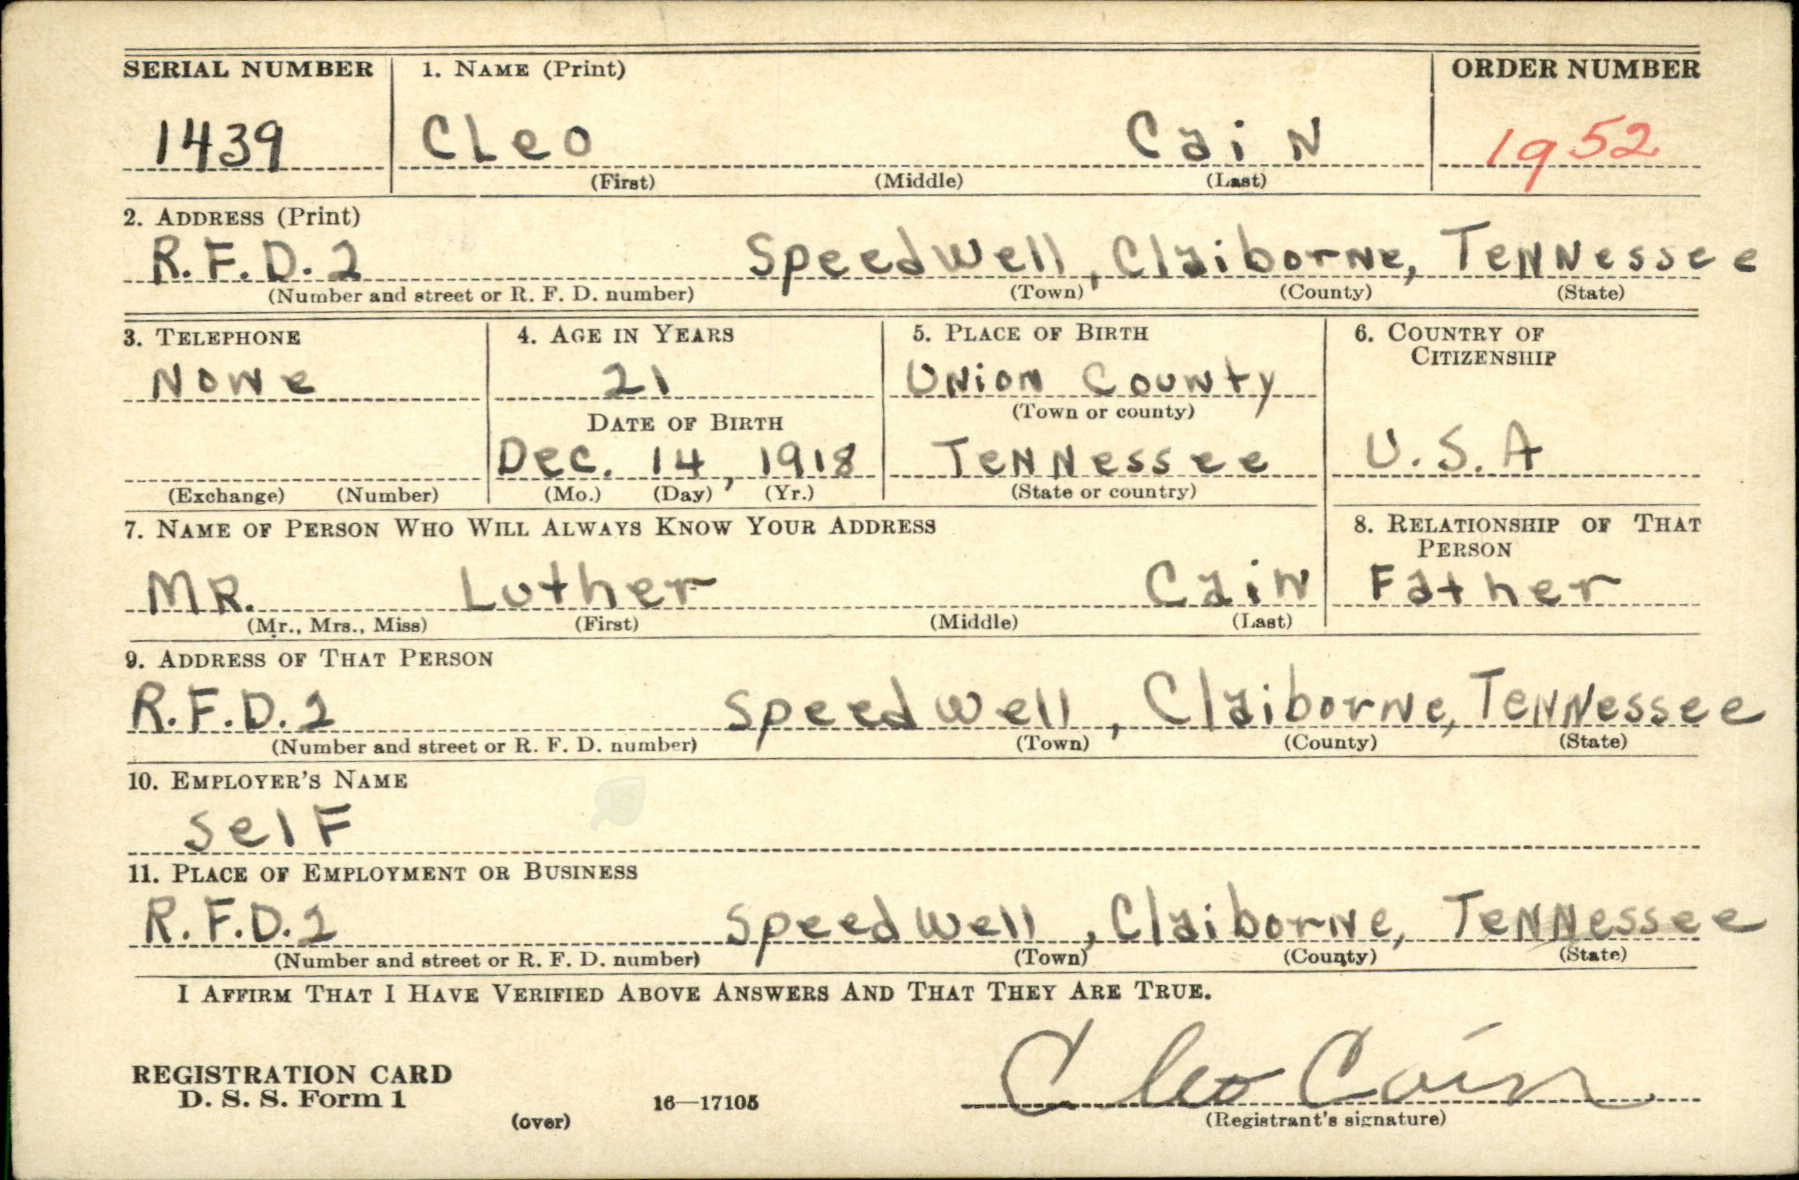 SERIAL NUMBER 1. NAME (Print) ORDER NUMBER
1439 Cleo Cain 1952
(First) (Middle) (Last)
2. ADDRESS (Print)
R.F.D. 2 Speedwell, Claiborne, Tennessee
(Number and street or R. F. D. number) (Town) (County) (State)
3. TELEPHONE 4. AGE IN YEARS 5. PLACE OF BIRTH 6. COUNTRY OF
CITIZENSHIP
None 21 Union County
DATE OF BIRTH (Town or county)
Dec. 14, 1918 Tennessee U.S.A
(Exchange) (Number) (Mo.) (Day) (Yr.) (State or country)
7. NAME OF PERSON WHO WILL ALWAYS KNOW YOUR ADDRESS 8. RELATIONSHIP OF THAT
PERSON
MR. Luther Cain Father
(Mr., Mrs., Miss) (First) (Middle) (Last)
9. ADDRESS OF THAT PERSON
R.F.D. 2 Speedwell, Claiborne, Tennessee
(Number and street or R. F. D. number) (Town) (County) (State)
10. EMPLOYER'S NAME
Self
11. PLACE OF EMPLOYMENT OR BUSINESS
R.F.D. 2 Speedwell, Claiborne, Tennessee
(Number and street or R. F. D. number) (Town) (County) (State)
I AFFIRM THAT I HAVE VERIFIED ABOVE ANSWERS AND THAT THEY ARE TRUE.
Cleo Cain
REGISTRATION CARD
D. S. S. Form 1 16—17105
(over) (Registrant's signature)